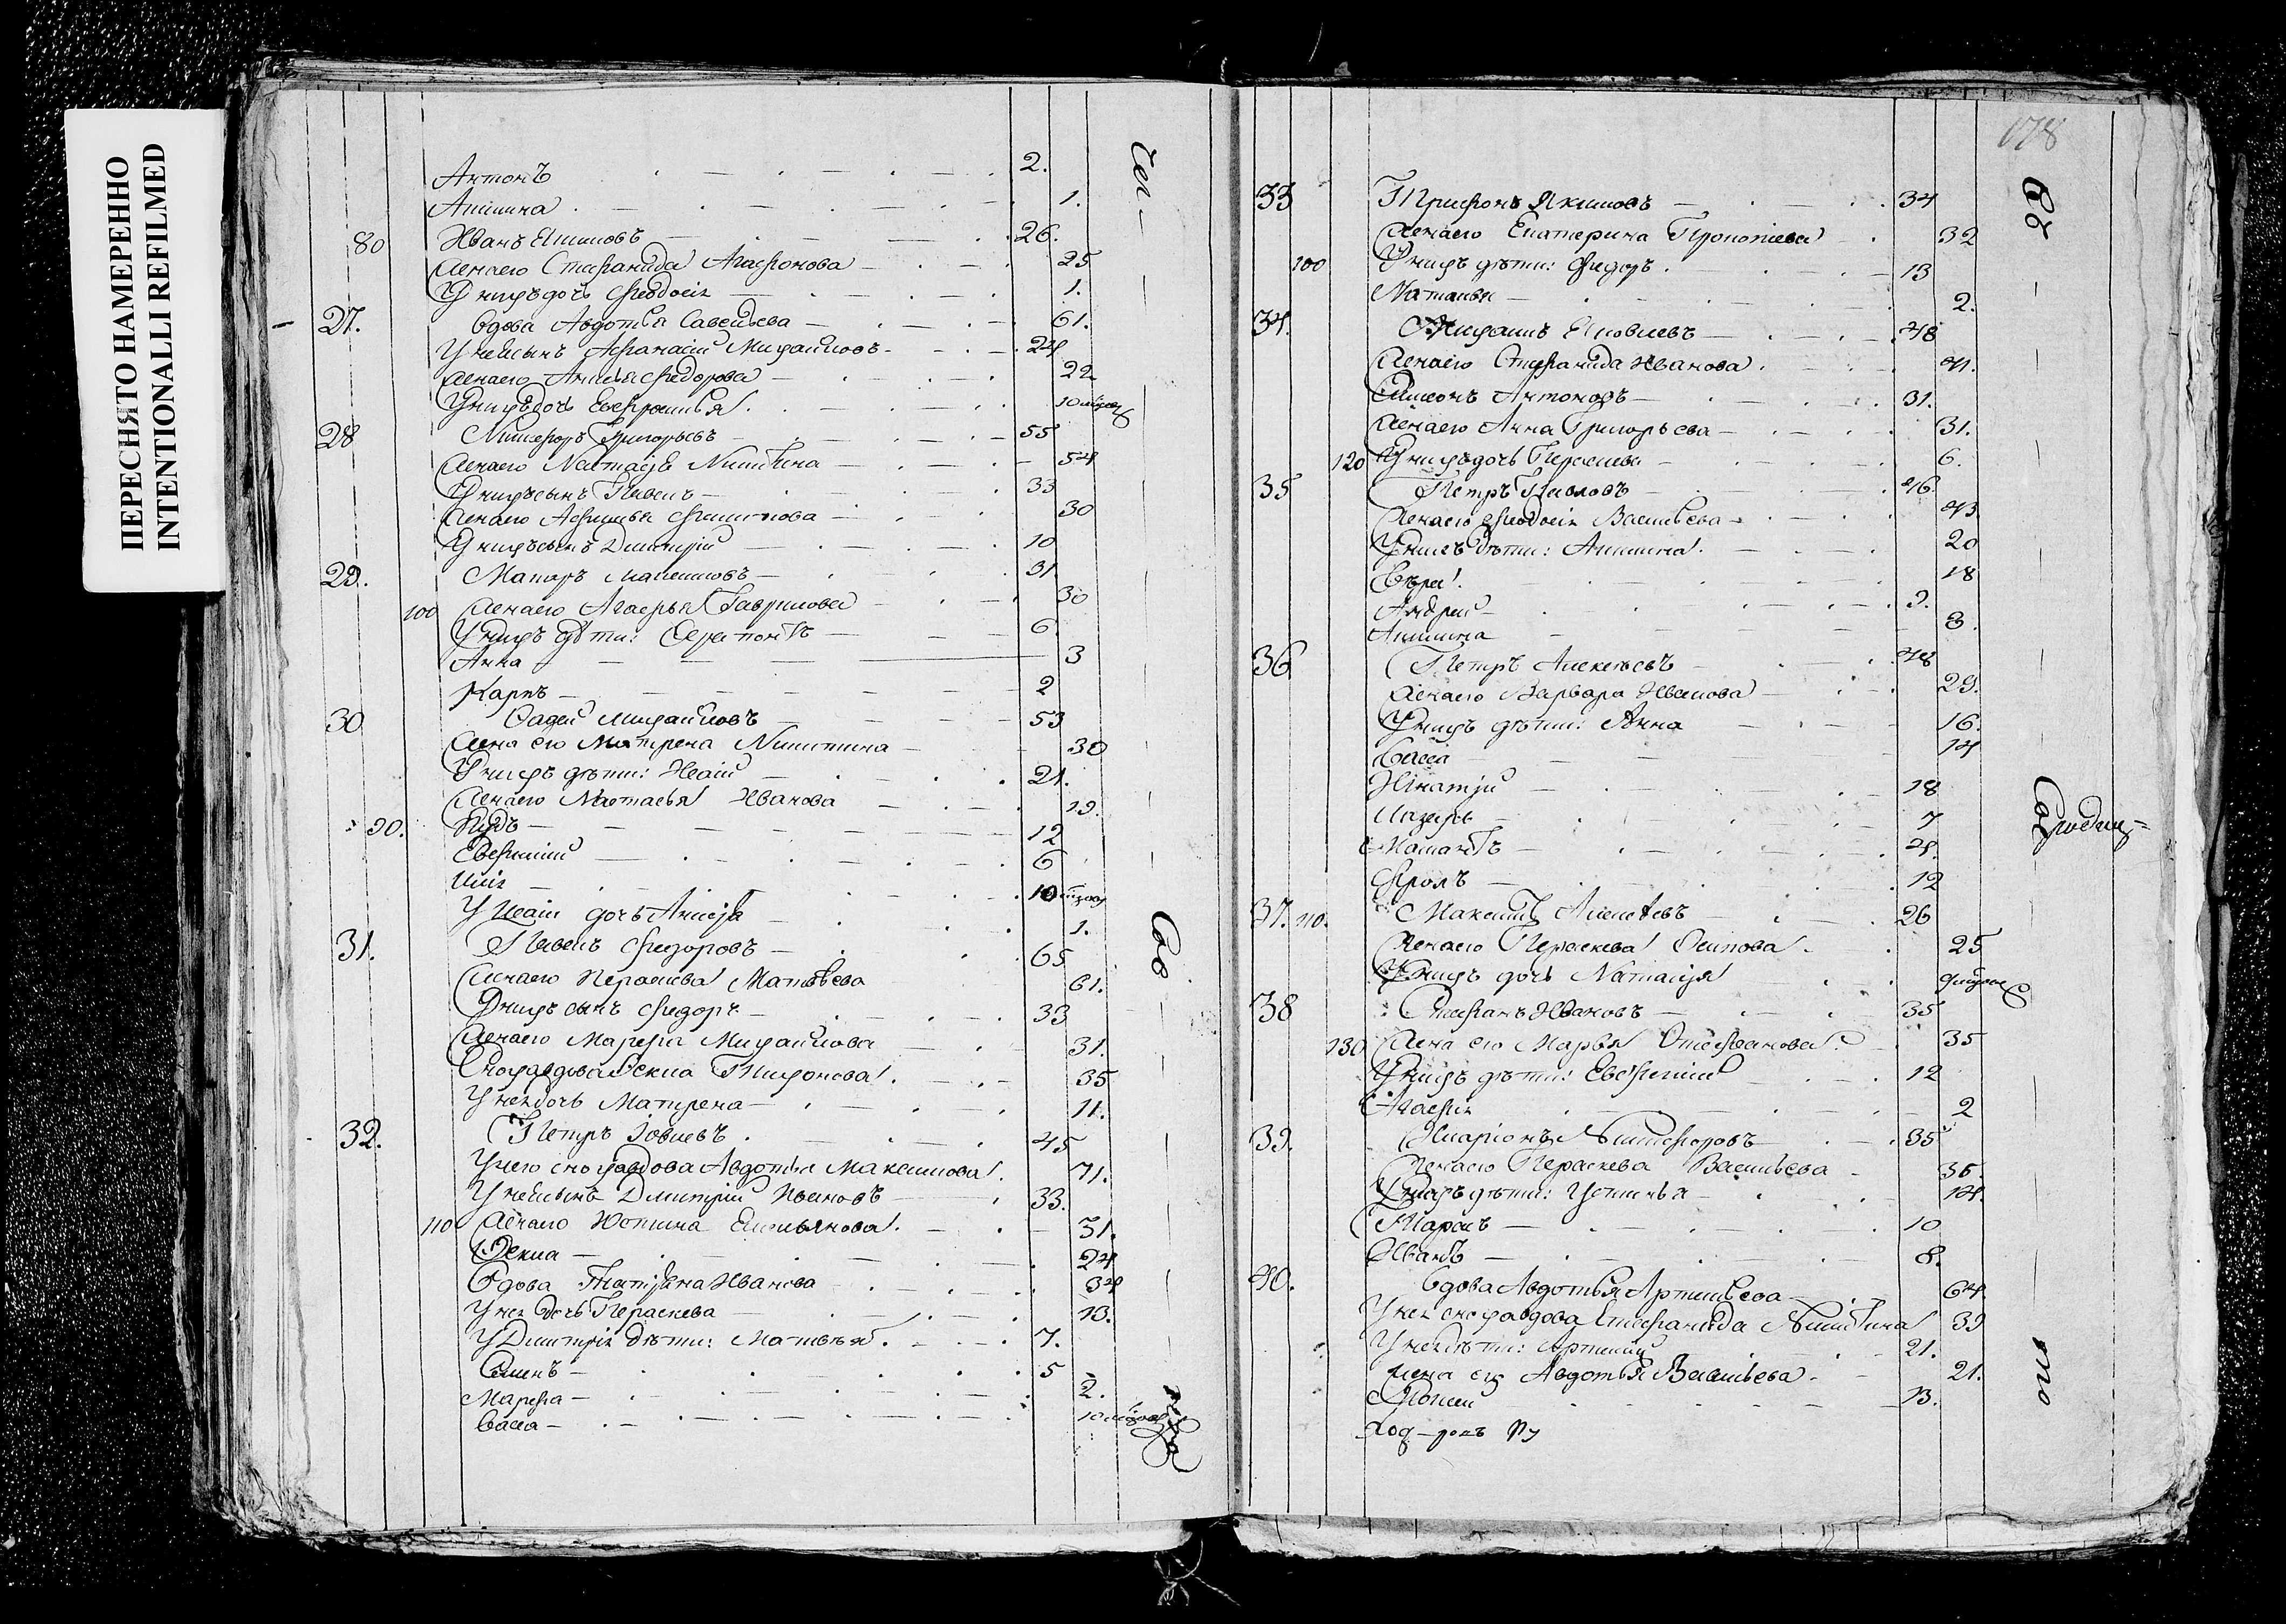 ПЕРЕСНЯТО НАМЕРЕННО
INTENTIONALLI REFILMED
Антонъ 2.
Анисина 1.
80 Иванъ 26.
жена его Стефанида Агафонова 25
У нихъ дочь Феодосія 1.
27. вдова Авдотья Савельева 61.
У нея сынъ Афанасій Михайловъ 24
жена его Федорова 22
У нихъ дочь Евфросинья 10
28 Никифоръ Григорьевъ 55
жена его Настасья Никитина 54
У нихъ сынъ Павелъ 33
жена его Афимья Филипова 30
У нихъ сынъ Димитрій 10
29. Макаръ 31
100 жена его Агафья Гаврилова 30
У нихъ дѣти: 6
Анна 3
Карпъ 2
30 Фадей Михайловъ 53
жена его Матрена Никитина 30
У нихъ дѣти: Исаій 21.
жена его Настасья Иванова 19.
90. 12
Евфимій 6
Илія 10
У Исаіи дочь 1.
31. Павелъ Федоровъ 65
жена его Параскева Матвѣева 61.
У нихъ сынъ Федоръ 33
жена его Марфа Михайлова 31.
Сноха вдова Фекла Тихонова 35
У нея дочь Матрена 11.
32. Петръ Іовлевъ 45
У него сноха вдова Авдотья Максимова 71.
У нея сынъ Димитрій Ивановъ 33.
110 жена его Устина Емельянова 31.
Фекла 24
вдова Татьяна Иванова 34
У нея дочь Параскева 13.
У Димитрія дѣти: Матвѣй 7.
Семенъ 5
Марфа 2.
Васса 10
178
33 Трифонъ Якимовъ 34
жена его Екатерина Прокопіева 32
100 У нихъ дѣти: Федоръ 13
Наталья 2.
34. Яковлевъ 48
жена его Стефанида Иванова 41.
Антоновъ 31.
жена его Анна Григорьева 31.
120 У нихъ дочь Параскева 6.
35 Петръ Павловъ 46
жена его Феодосія Васильева 43
У нихъ дѣти: Анисина 20
Вѣра 18
Андрей 9.
Анисина 3.
36 Петръ Алексѣевъ 48
жена его Варвара Иванова 29.
У нихъ дѣти: Анна 16.
Васса 14
Игнатій 18
Лазарь 7
4.
Фролъ 12
37. 110. Максимъ Алексѣевъ 26
жена его Параскева Осипова 25
У нихъ дочь Наталія
38 Стефанъ Ивановъ 35
130 жена его Марья Стефанова 35
У нихъ дѣти: Евфимій 12
Агафія 2
39. Иларіонъ Никифоровъ 35
жена его Параскева Васильева 36.
У нихъ дѣти: Устинья 14
Тарасъ 10
Иванъ 8.
40. вдова Авдотья Артемьева 64
У нея сноха вдова Стефанида Никитина 39
У нея дѣти: Артемій 21.
жена его Авдотья Васильева 21.
13.